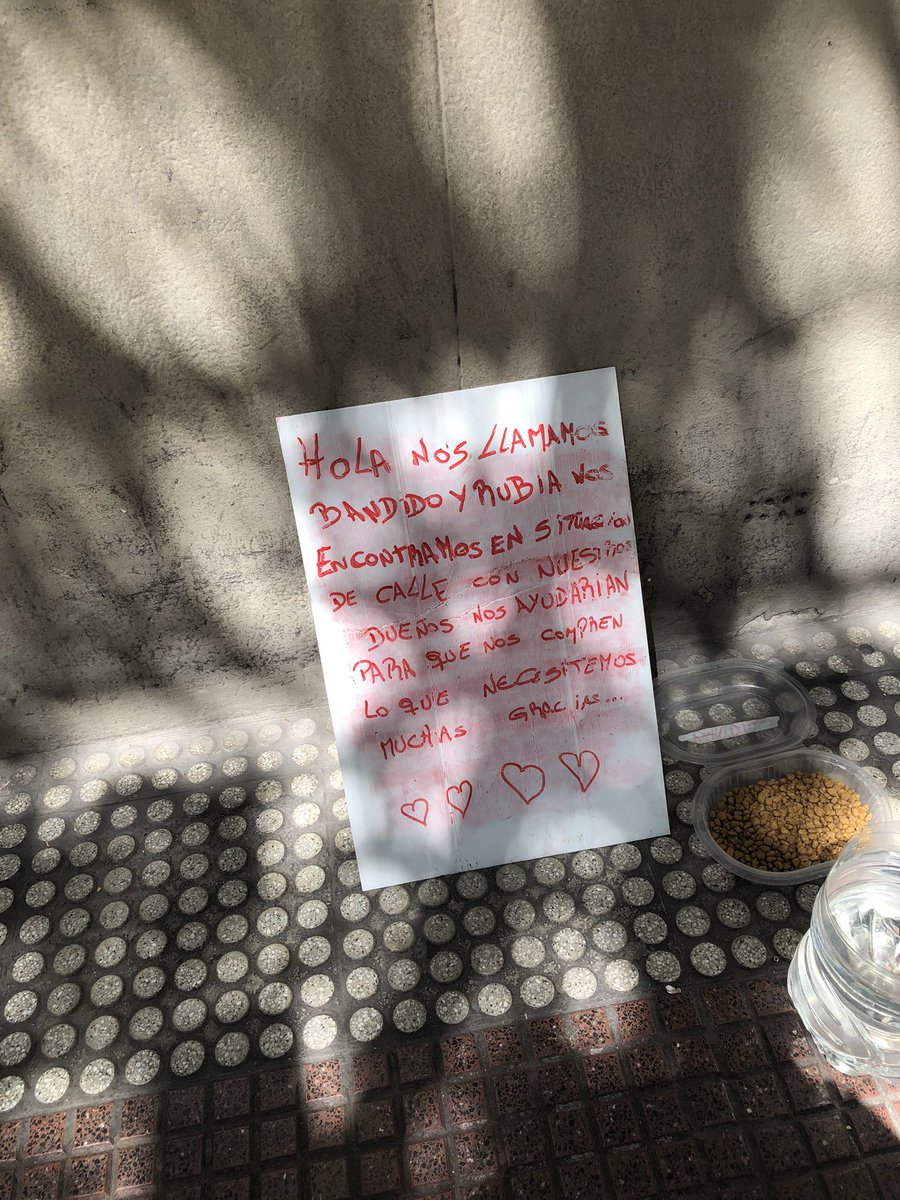 HOLA NOS LLAMAMOS
BANDIDO Y RUBIA NOS
ENCONTRAMOS EN SITUACION
DE CALLE CON NUESTROS
DUEÑOS NOS AYUDARIAN
PARA QUE NOS COMPREN
LO QUE NECESITEMOS
MUCHAS GRACIAS...